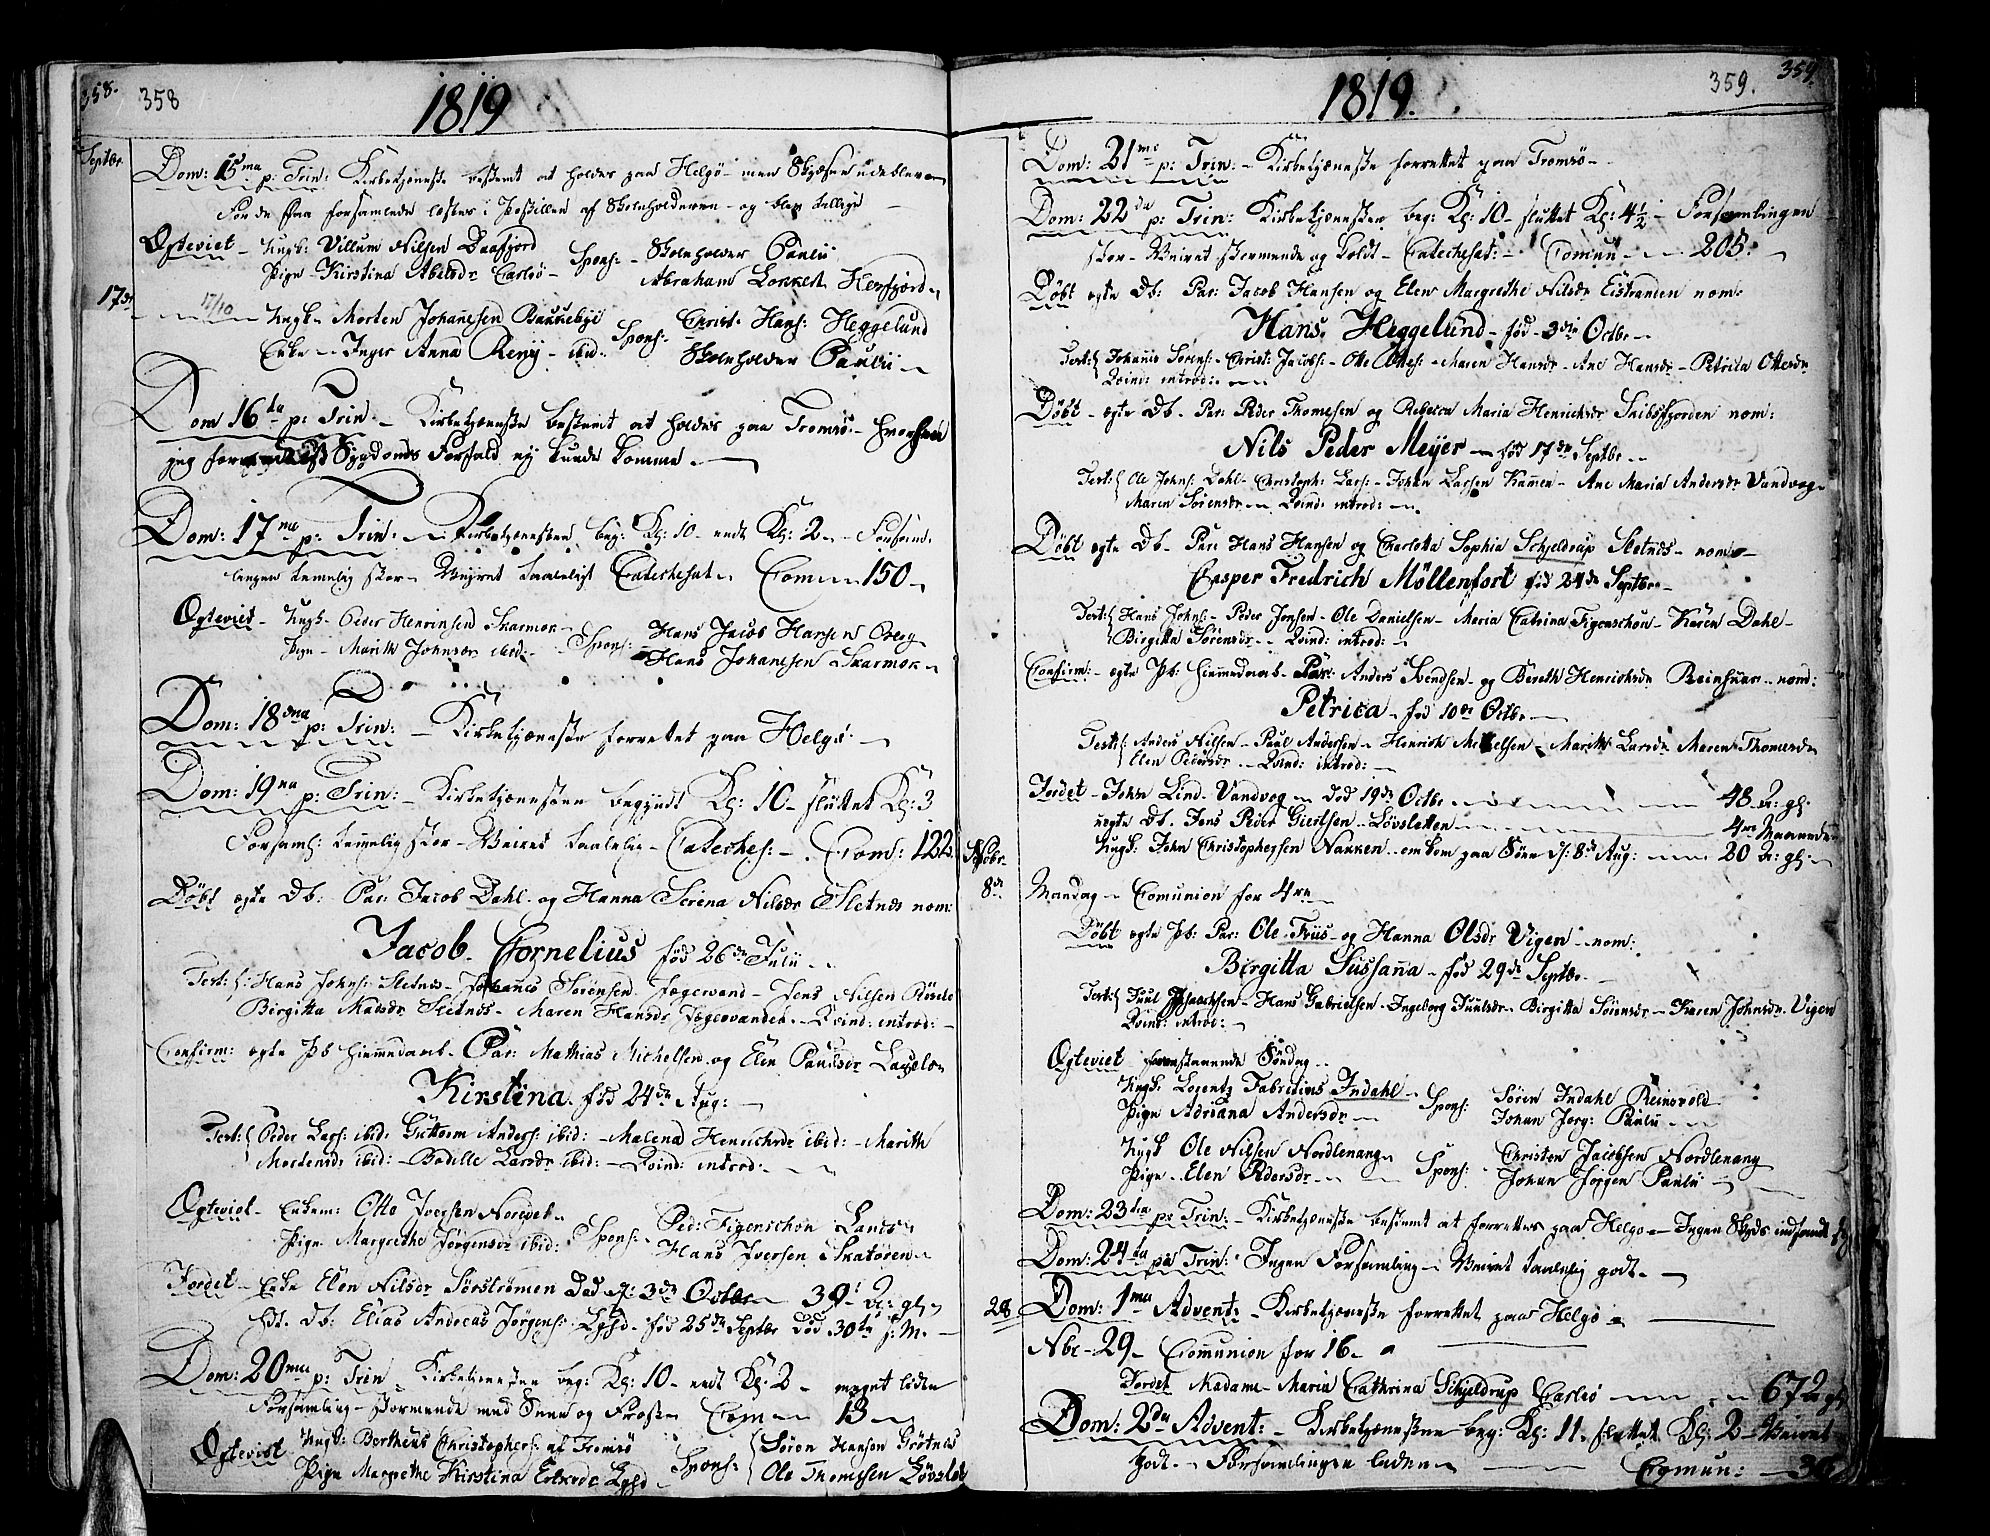 358. 358
1819
Septbr.
Dom: 15ma p: Trin: Kirketjeneste bestemt at holdes paa Helgö – men udebleve
af Skoleholderen – og blev tillige
Egteviet – Ungk: Villum Nilsen Daafjord Spons: – Skoleholder Pauli
Pige – Kirstina Abelsdr Carlsö – Abraham Lokkert Hersfjord
17de 17/10 Ungk – Morten Johanesen Christ: Hans: Heggelund
Enke – Inger Anna – ibid: Spons: Skoleholder Pauli
Dom 16ta p: Trin: – Kirketjeneste bestemt at holdes paa Tromsö – hvorhen
jeg Sygdoms Forfald ej kunde komme. –
Dom: 17ma p: Trin: – Kirketjenesten beg: Kl: 10 – endt Kl: 2 – Forsam-
lingen temelig stor – Vejret taaleligt Catechesat – Com – 150 –
Egteviet – Ungk – Peder Henrinsen Skarmok – Hans Jacob Hansen
Pige – Marith Johnsdr ibid: – Spons: – Hans Johanesen Skarmok –
Dom: 18dma p: Trin: – Kirketjeneste forrettet paa Helgö –
Dom: 19na p: Trin: – Kirketjenesten begyndt Kl: 10 – sluttet Kl: 3
Forsaml: temelig stor – Veiret taalelig – Cateches: – Com: 122
Döbt egte Db: Par: Jacob Dahl og Hanna Serena Nilsdr Sletnes nom:
Jacob Cornelius föd 26de Julii –
Test: Hans Johns: Sletnes – Johanes Sörensen Jægervand – Jens Nilsen
Birgitta Madsdr Sletnes – Maren Hansdr Jægervandet – Qvind: introd: –
Confirm: egte Pb hiemedaab – Par: Mathias Michelsen og Elen Paulsdr
Kirstina föd 24de Aug: –
Test: Peder Lars: ibid: Guttorm Anders: ibid: – Malena Henrichsdr ibid: – Marith
Mortensdr ibid: – Bodille Larsdr ibid: – Qvind: introd: –
Egteviet – Enkem: Otto Joersen Ped: Figenschou
Pige Margrethe Jörgensdr ibid: Spons: Hans Iversen Skatören –
Jordet – Enke Elen Nilsdr Sörströmen Död d: 3de Octbr – 39 Ar: gl:
Db: Elias Andreas Jörgens: – föd 25de Septbr Död 30te s: M. –
Dom: 20ma p: Trin – Kirketjenesten beg: Kl: 10 – endt Kl: 2 – meget liden
Forsamling – Stormende med Snee og Frost – Com – 13 –
Egteviet Ungk: Berthius Christophers: af Tromsö Spons: Sören Hansen Grötnes
Pige Margrethe Kirstina Ole Thomesen
1819.
359. 359
Dom: 21me p: Trin: – Kirketjeneste forrettet paa Tromsö –
Dom: 22da p: Trin: Kirketjenesten beg: Kl: 10 – sluttet Kl: 4½ – Forsamlingen
stor – Veiret stormende og koldt – Catechesat: – Comun – 205 –
Döbt egte Db: Par: Jacob Hansen og Elen Margrethe Nilsdr Eistranden nom:
Hans Heggelund – föd – 3die Octbr –
Test: Johanis Sörens: – Christ: Jacobs: – Otte Ottes: – Maren Hansdr – Ane Hansdr – Petrica Ottesdr
Qvind: introd: –
Döbt – egte Db – Par: Peder Thomesen og Rebecca Maria Henrichsdr Snibsfjorden nom:
Nils Peder Meyer – föd 17de Septbr –
Test: Ole Johns: Dahl – Christoph: Lars: – Johan Larsen – Ane Maria Andersdr Vandvog –
Maren Sörensdr – Qvind: introd: –
Döbt egte Db – Par: Hans Hansen og Charlotta Sophia Schjeldrup Sletnes – nom –
Casper Fredrich Möllenfort föd 24de Septbr –
Test: Hans Johns: – Peder Jonsen – Ole Danielsen – Maria Catrina Figenschou – Karen Dahl –
Birgitta Sörensdr – Qvind: introd: –
Confirm: – egte Pb: hiemedaab – Par: Anders Svendsen – og Bereth Henrichsdr – nom:
Petrica – föd 10de Octbr –
Test: Anders Nilsen – Paul Andersen – Henrich – Marith Larsdr Maren Thomesdr
Elen Pedersdr – Qvind: introd: –
Jordet – John Lind – Vandvog – död 19de Octbr – 48 Ar: gl:
uegte Db. Jens Peder Giertsen – Lövsletten – 4re Maaneder
Ungk: John Christophersen – omkom paa Söen d: 8de Aug: – 20 Ar: gl: –
Novbr.
8de Mandag – Comunion for 4re –
Döbt egte Pb: Par: Ole Friis – og Hanna Olsdr Vigen – nom:
Birgitta Sussana – föd 29de Septbr. –
Test: Juul Isaachsen – Hans Gabrielsen – Ingeborg Juulsdr – Birgitta Sörensdr – Karen Johnsdr – Vigen
Qvind: introd: –
Egteviet Söndag –
Ungk: Lorentz Fabritius Indahl – Spons: Sören Indahl
Pige Adriana Andersdr – Johan Jörg: Pauli –
Ungk Ole Nilsen Nordlenang – Spons: – Christen Jacobsen Nordlenang
Pige – Elen Pedersdr – Johan Jörgen Pauli –
Dom: 23tia p: Trin: – Kirketjeneste bestemt at forrettes paa Helgö – Ingen Skyds indfandt sig
Dom: 24ta p: Trin: Ingen Forsamling – Veiret taalelig godt. –
28 Dom: 1ma Advent: – Kirketjeneste forrettet paa Helgö –
Nbr – 29 – Comunion for 16 –
Jordet Madame – Maria Cathrina Schjeldrup Carlsö – 67 Ar gl
Dom: 2da Advent: – Kirketjenesten beg: Kl: 11. sluttet Kl: 2 – Veiret
godt. – Forsamlingen liden – Comun: –